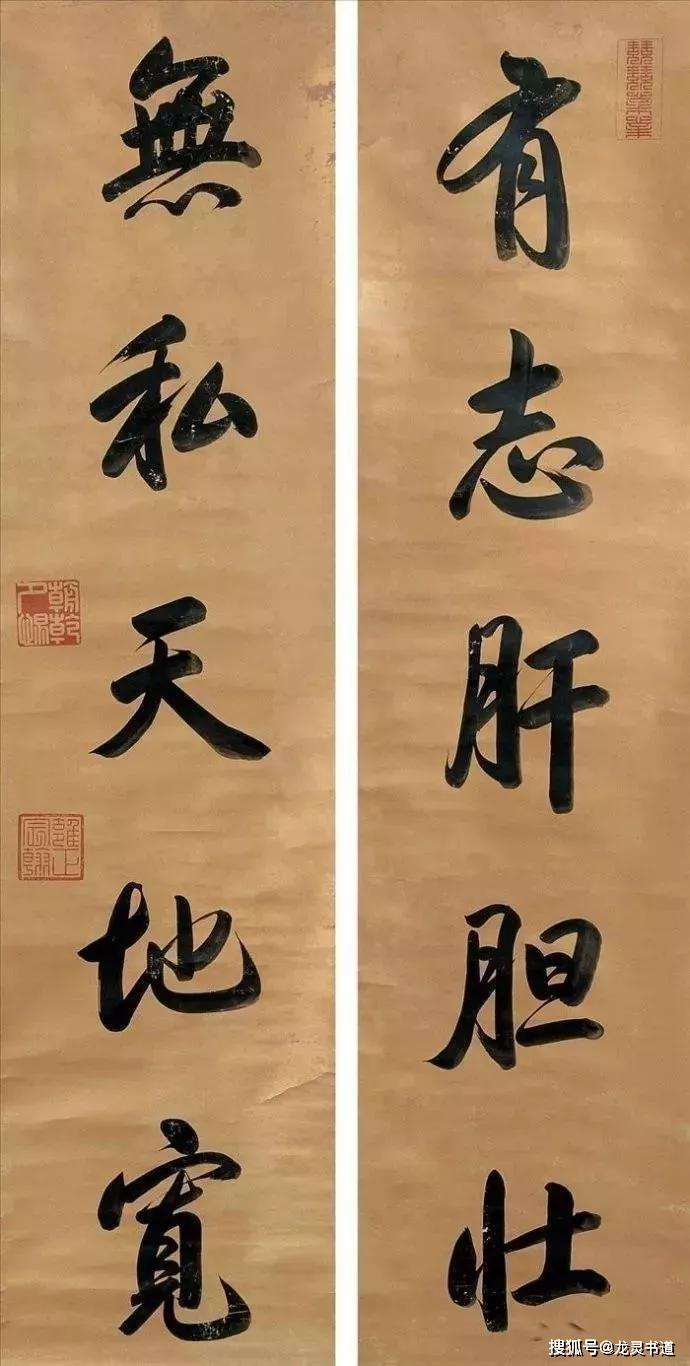 有志肝胆壮
無私天地寬
朝乾夕惕
雍正宸翰
搜狐号@龙灵书道